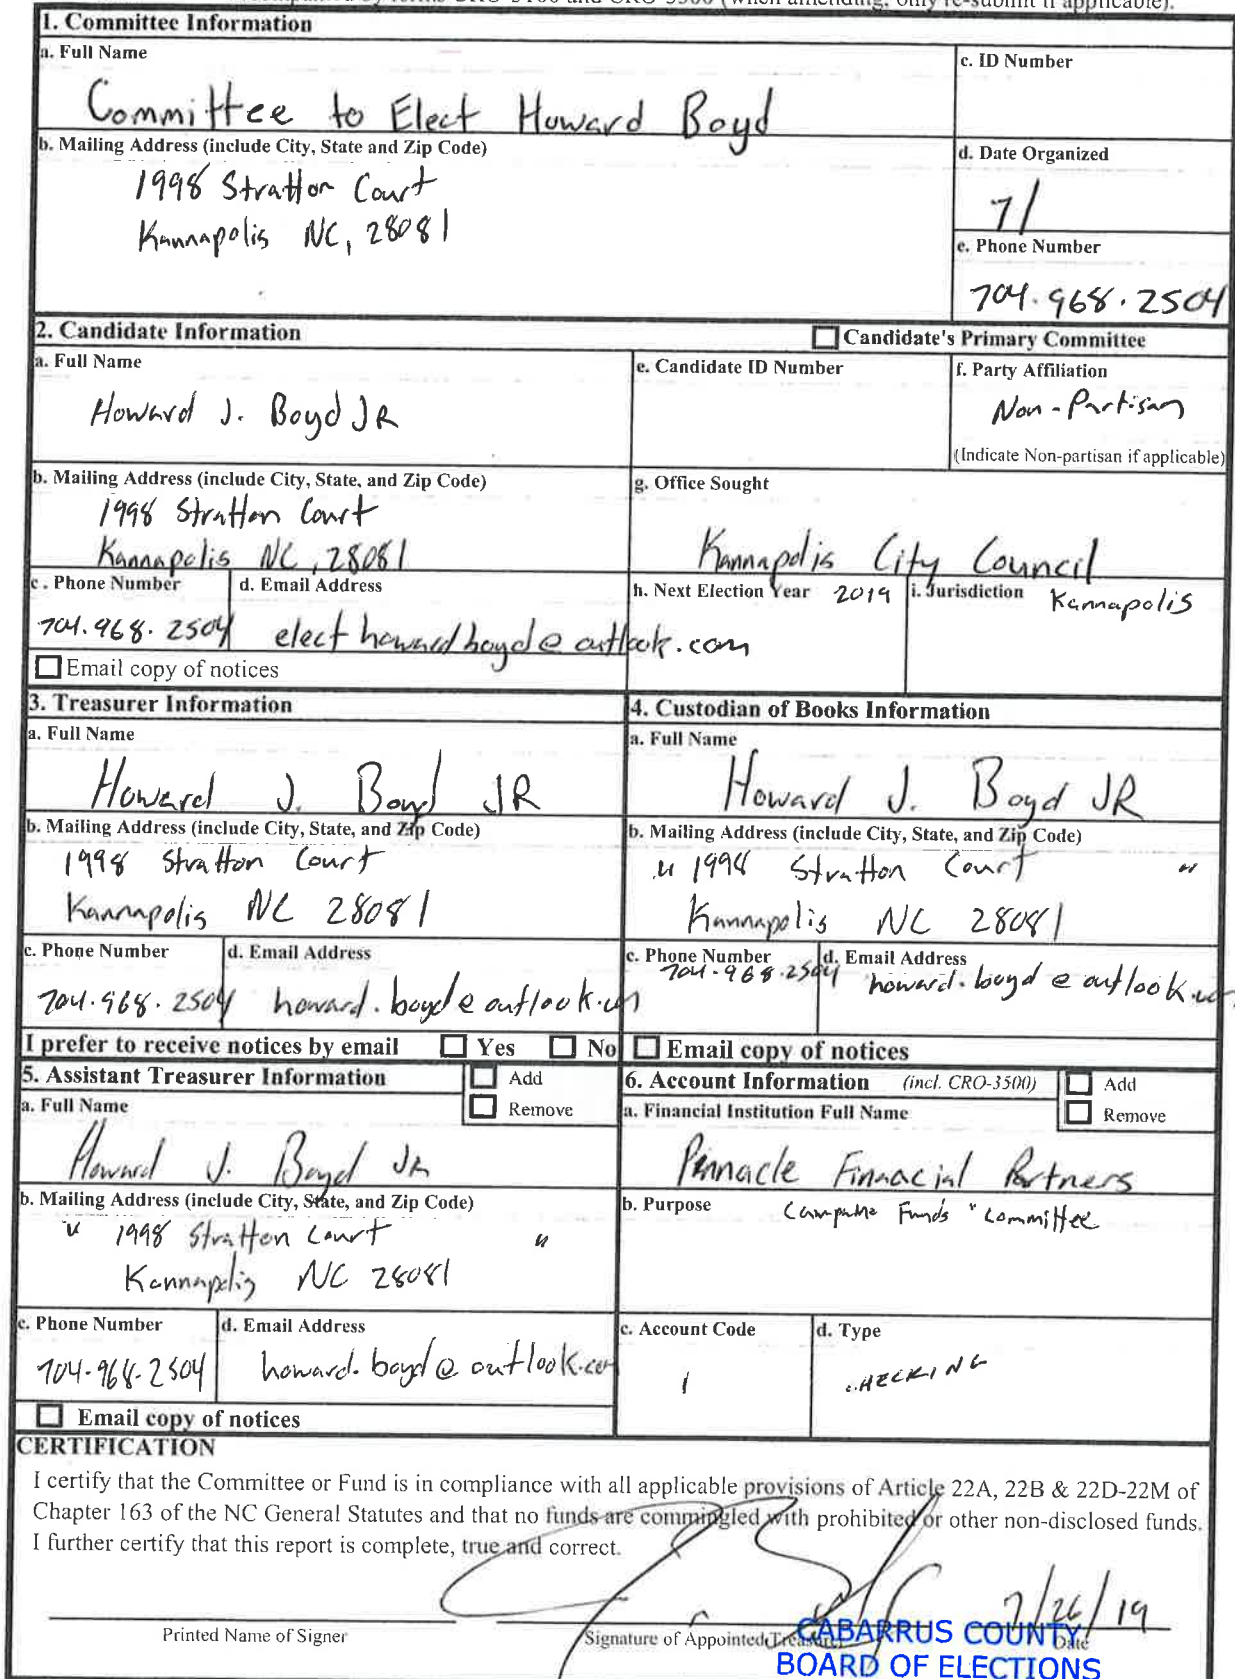 (when amending, only re-submit if applicable).
1. Committee Information
a. Full Name
Committee to Elect Howard Boyd
c. ID Number
b. Mailing Address (include City, State and Zip Code)
1998 Stratton Court
Kannapolis NC, 28081
d. Date Organized
7/
e. Phone Number
704.968.2504
2. Candidate Information
Candidate's Primary Committee
a. Full Name
Howard J. Boyd JR
e. Candidate ID Number
f. Party Affiliation
Non-Partisan
(Indicate Non-partisan if applicable)
b. Mailing Address (include City, State, and Zip Code)
1998 Stratton Court
Kannapolis NC, 28081
g. Office Sought
Kannapolis City Council
c. Phone Number
704.968.2504
d. Email Address
electhowardboyd@outlook.com
h. Next Election Year 2019
i. Jurisdiction Kannapolis
Email copy of notices
3. Treasurer Information
a. Full Name
Howard J. Boyd JR
b. Mailing Address (include City, State, and Zip Code)
1998 Stratton Court
Kannapolis NC 28081
c. Phone Number
704.968.2504
d. Email Address
howard.boyd@outlook.com
I prefer to receive notices by email Yes No
4. Custodian of Books Information
a. Full Name
Howard J. Boyd JR
b. Mailing Address (include City, State, and Zip Code)
" 1998 Stratton Court "
Kannapolis NC 28081
c. Phone Number
704.968.2504
d. Email Address
howard.boyd@outlook.com
Email copy of notices
5. Assistant Treasurer Information
Add
Remove
a. Full Name
Howard J. Boyd JR
b. Mailing Address (include City, State, and Zip Code)
" 1998 Stratton Court "
Kannapolis NC 28081
c. Phone Number
704-968-2504
d. Email Address
howard.boyd@outlook.com
Email copy of notices
6. Account Information (incl. CRO-3500)
Add
Remove
a. Financial Institution Full Name
Pinnacle Finnacial Partners
b. Purpose
Funds "Committee
c. Account Code
1
d. Type
CHECKING
CERTIFICATION
I certify that the Committee or Fund is in compliance with all applicable provisions of Article 22A, 22B & 22D-22M of
Chapter 163 of the NC General Statutes and that no funds are commingled with prohibited or other non-disclosed funds.
I further certify that this report is complete, true and correct.
7/26/19
Printed Name of Signer
Signature of Appointed Treasurer
Date
CABARRUS COUNTY
BOARD OF ELECTIONS